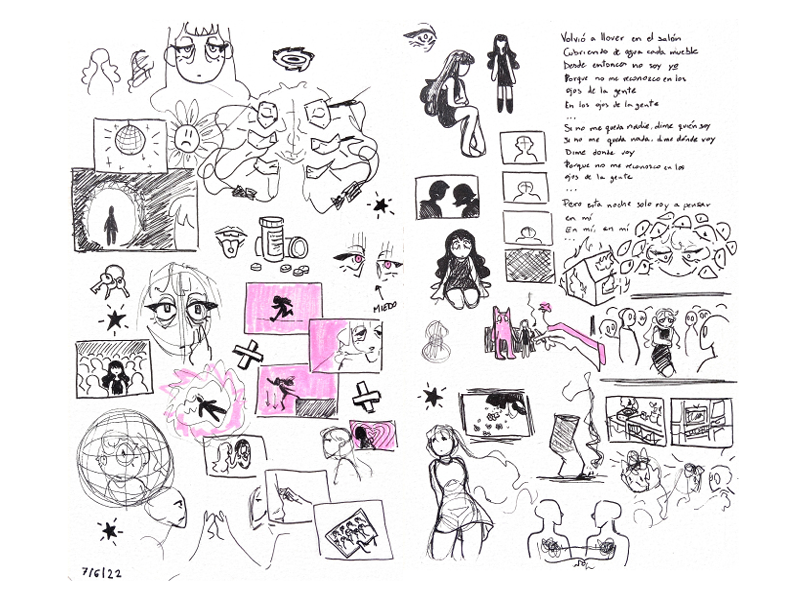 Volvió a llover en el salón
Cubriendo de agua cada mueble
Desde entonces no soy yo
Porque no me reconozco en los
ojos de la gente
En los ojos de la gente
...
Si no me queda nadie, dime quién soy
Si no me queda nada, dime dónde voy
Dime donde voy
Porque no me reconozco en los
ojos de la gente
...
Pero esta noche solo voy a pensar
en mí
En mí, en mí
...
MIEDO
7/6/22